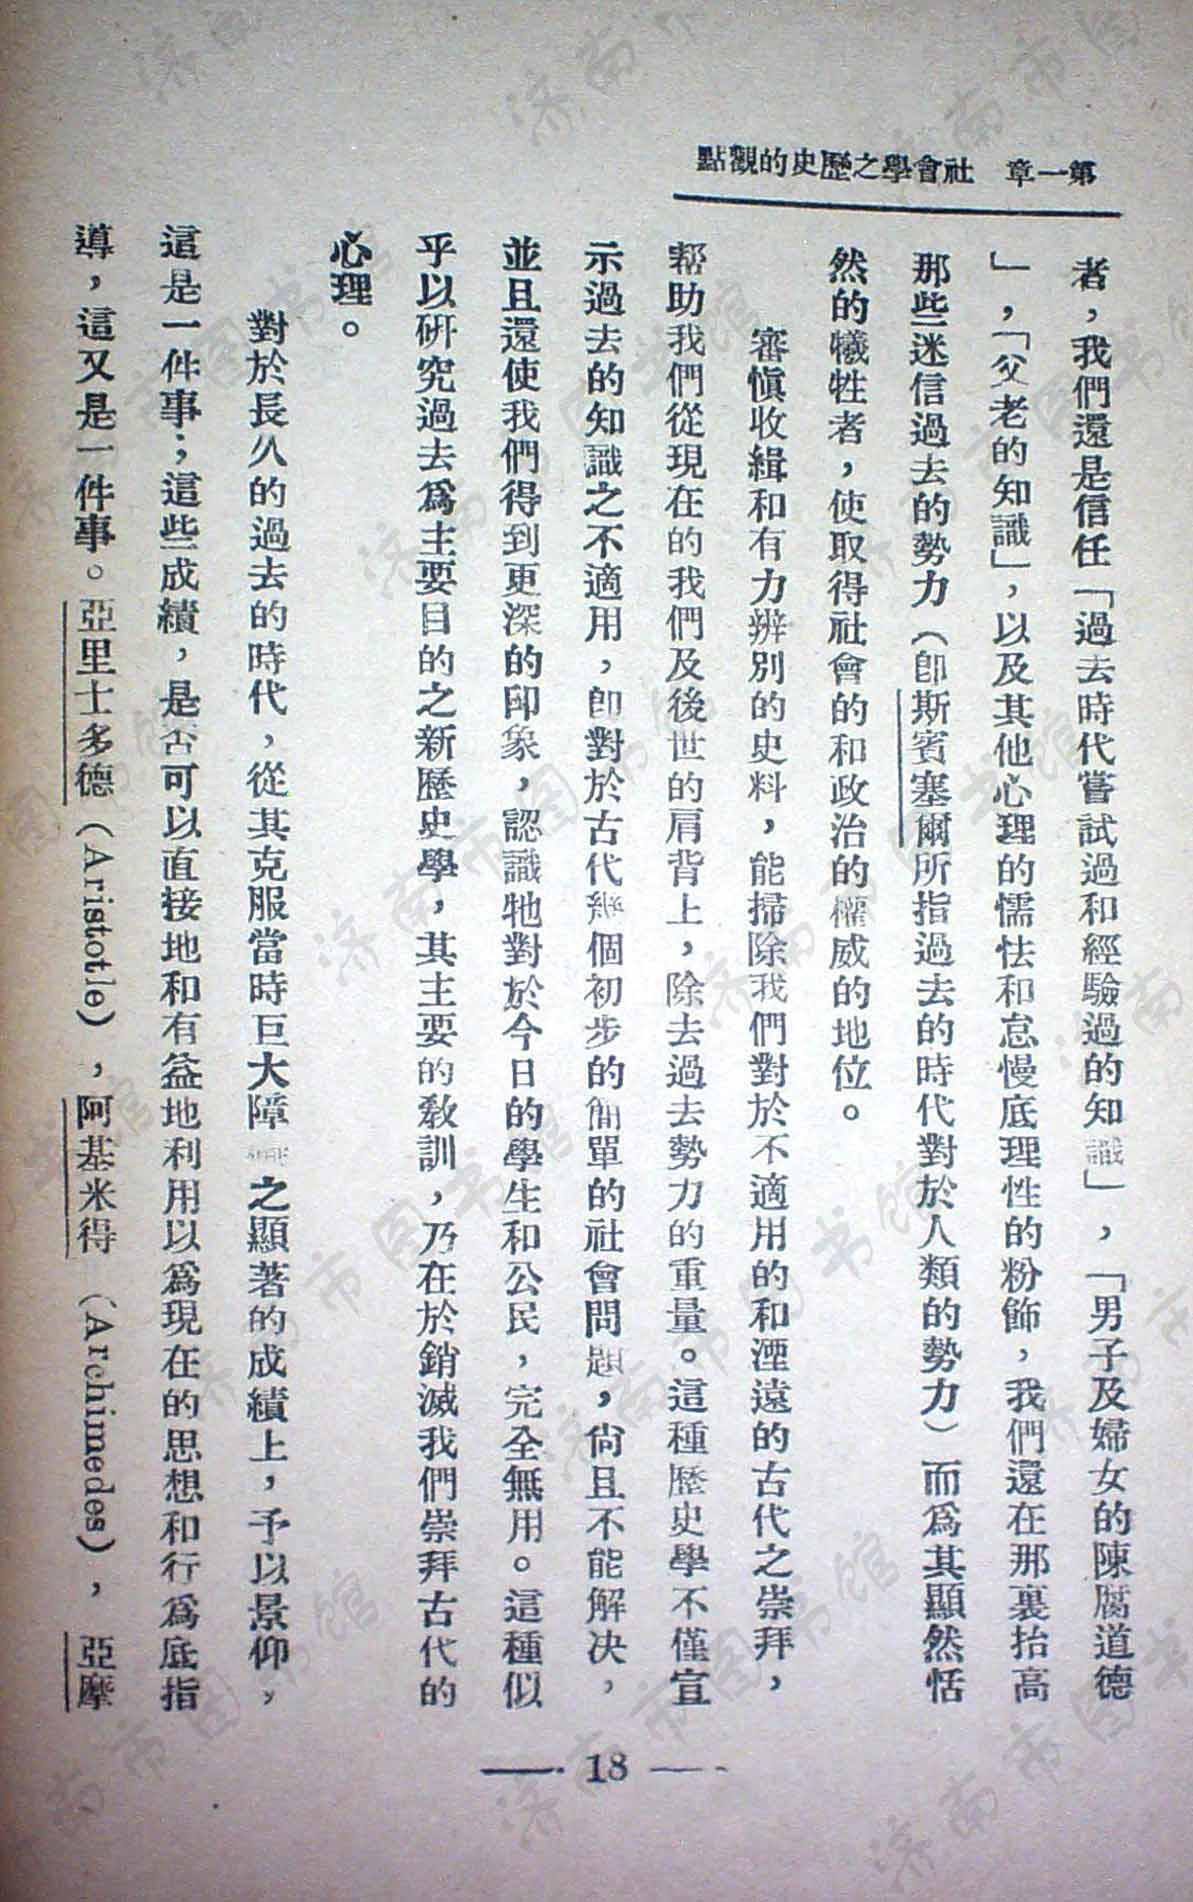 第一章　社會學之歷史的觀點
者，我們還是信任「過去時代嘗試過和經驗過的知識」，「男子及婦女的陳腐道德
」，「父老的知識」，以及其他心理的懦怯和怠慢底理性的粉飾，我們還在那裏抬高
那些迷信過去的勢力（卽斯賓塞爾所指過去的時代對於人類的勢力）而爲其顯然恬
然的犧牲者，使取得社會的和政治的權威的地位。
審慎收緝和有力辨別的史料，能掃除我們對於不適用的和湮遠的古代之崇拜，
幫助我們從現在的我們及後世的肩背上，除去過去勢力的重量。這種歷史學不僅宣
示過去的知識之不適用，卽對於古代幾個初步的簡單的社會問題，尙且不能解決，
並且還使我們得到更深的印象，認識牠對於今日的學生和公民，完全無用。這種似
乎以硏究過去爲主要目的之新歷史學，其主要的敎訓，乃在於銷滅我們崇拜古代的
心理。
對於長久的過去的時代，從其克服當時巨大障之顯著的成績上，予以景仰，
這是一件事；這些成績，是否可以直接地和有益地利用以爲現在的思想和行爲底指
導，這又是一件事。亞里士多德（Aristotle），阿基米得（Archimedes），亞摩
— 18 —
济南市图书馆